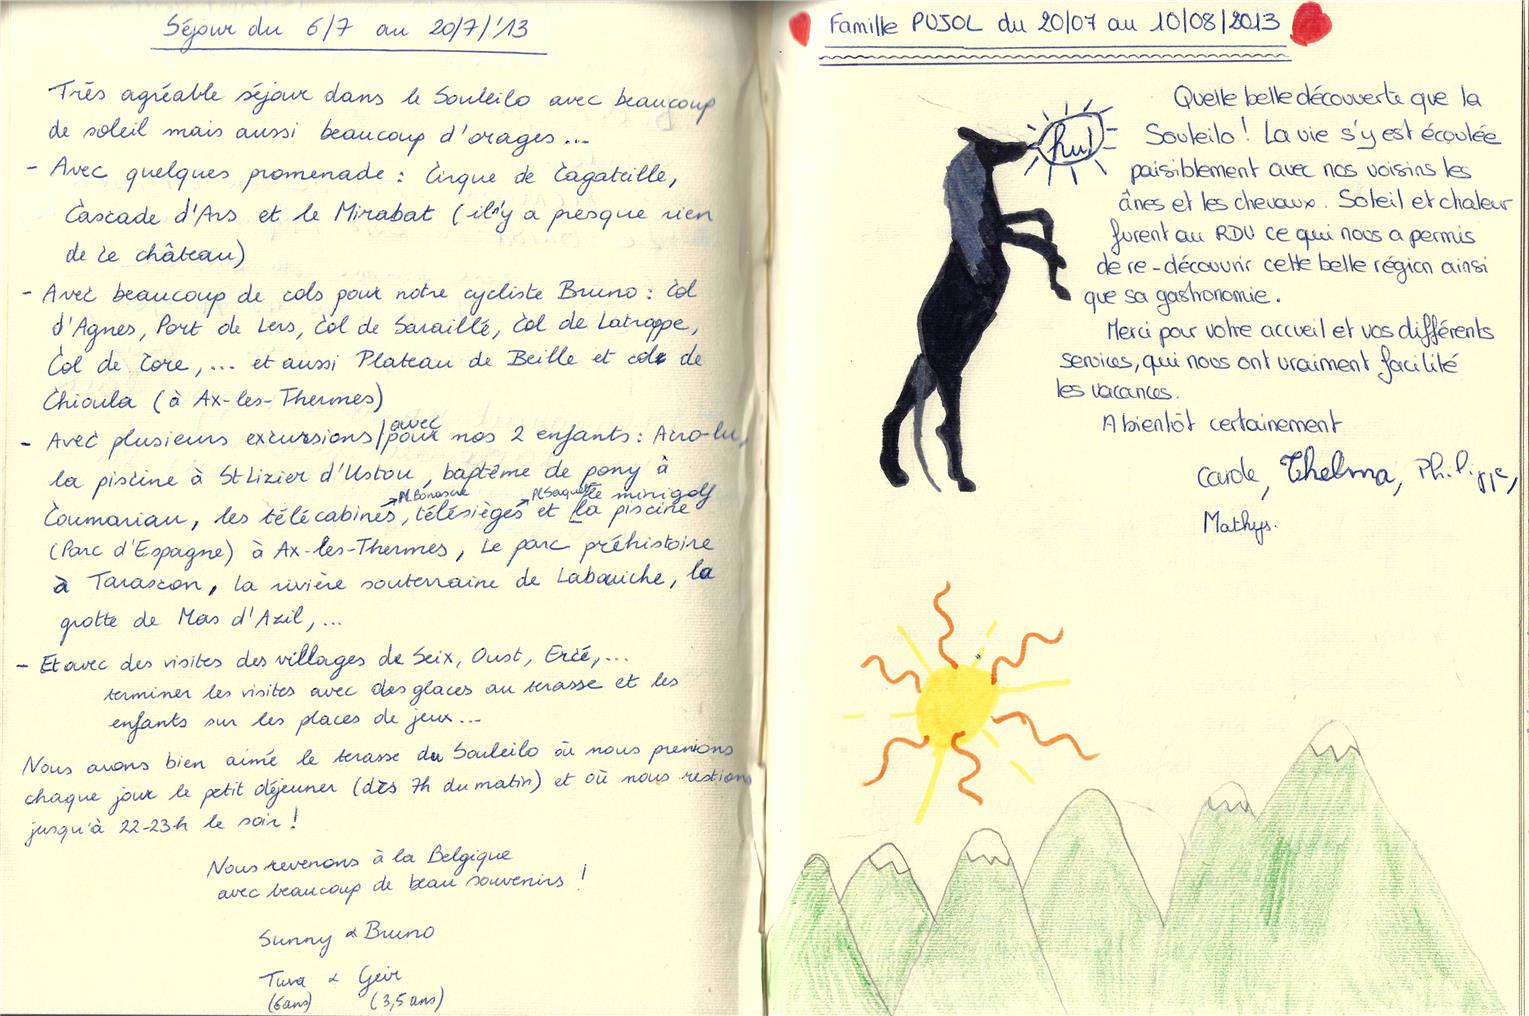 Séjour du 6/7 au 20/7/'13
Très agréable séjour dans le Souleilo avec beaucoup
de soleil mais aussi beaucoup d'orages...
- Avec quelques promenade : Cirque de Cagateille,
Cascade d'Ars et le Mirabat (il n'y a presque rien
de ce château)
- Avec beaucoup de cols pour notre cycliste Bruno : Col
d'Agnes, Port de Lers, Col de Saraillé, Col de Latrappe,
Col de Core, ... et aussi Plateau de Beille et col de
Chioula (à Ax-les-Thermes)
- Avec plusieurs excursions/pour avec nos 2 enfants : Acro-lu,
la piscine à St Lizier d'Ustou, baptême de pony à
Coumariau, les télécabines → Pl. Bonascre, télésièges → Pl. Saquet et le minigolf
la piscine
(Parc d'Espagne) à Ax-les-Thermes, Le parc préhistoire
à Tarascon, la rivière souterraine de Labouiche, la
grotte de Mas d'Azil, ...
- Et avec des visites des villages de Seix, Oust, Ercé, ...
terminer les visites avec des glaces au terasse et les
enfants sur les places de jeux...
Nous avons bien aimé le terasse du Souleilo où nous prenions
chaque jour le petit déjeuner (dès 7h du matin) et où nous restions
jusqu'à 22-23h le soir !
Nous revenons à la Belgique
avec beaucoup de beau souvenirs !
Sunny & Bruno
Tuva & Geir
(6ans) (3,5 ans)
Famille PUJOL du 20/07 au 10/08/2013
hu!
Quelle belle découverte que la
Souleilo ! La vie s'y est écoulée
paisiblement avec nos voisins les
ânes et les chevaux. Soleil et chaleur
furent au RDV ce qui nous a permis
de re-découvrir cette belle région ainsi
que sa gastronomie.
Merci pour votre accueil et vos différents
services, qui nous ont vraiment facilité
les vacances.
A bientôt certainement
Carole, Thelma, Philippe,
Mathys.